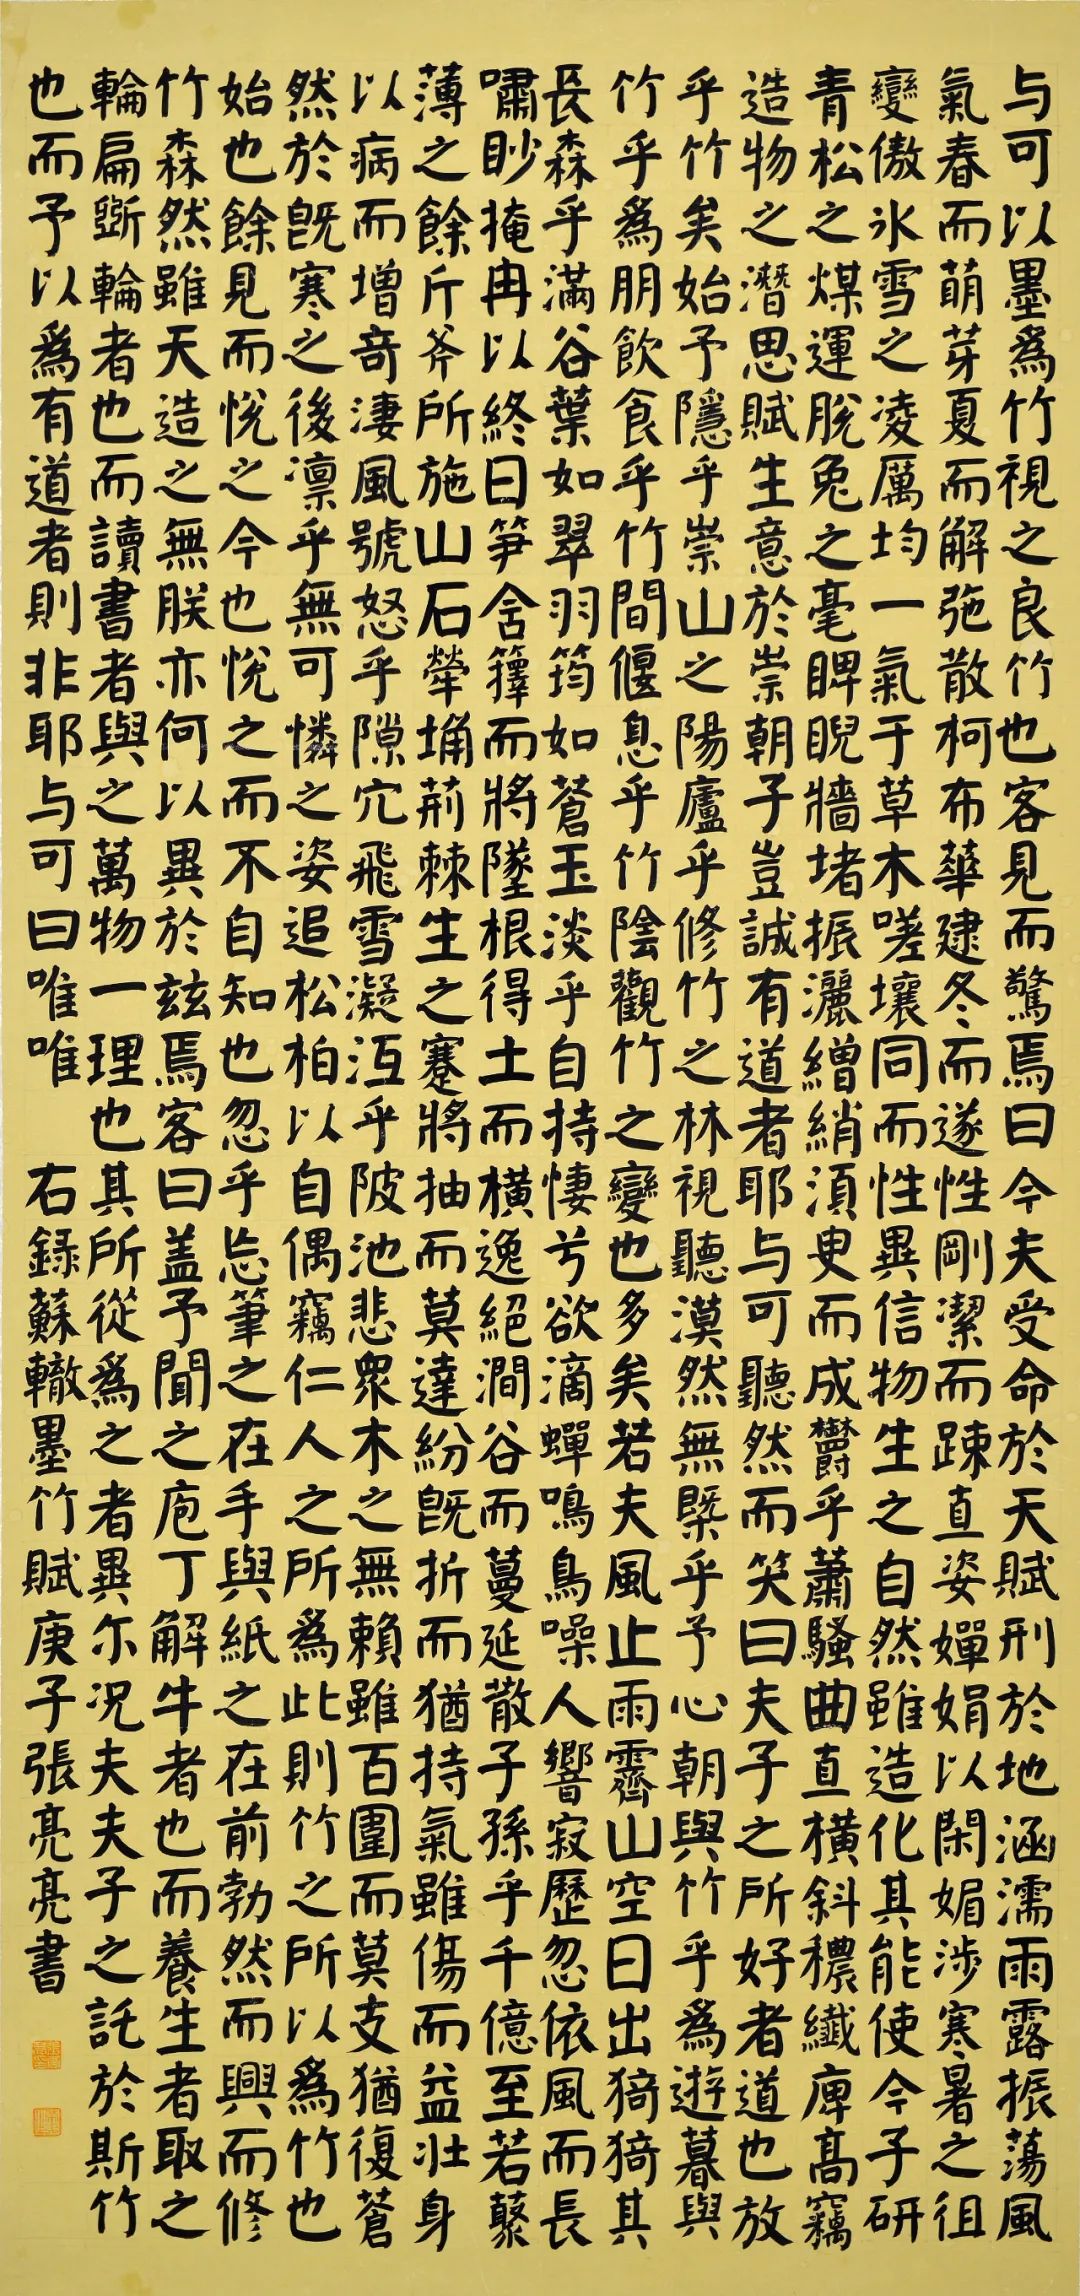 与可以墨為竹視之良竹也客見而驚焉曰今夫受命於天賦刑於地涵濡雨露振蕩風
氣春而萌芽夏而解弛散柯布華建冬而遂性剛潔而疎直姿嬋娟以閑媚涉寒暑之徂
變傲氷雪之凌厲均一氣于草木嗟壤同而性異信物生之自然雖造化其能使今子研
青松之煤運脫兔之毫睥睨牆堵振灑繒綃須臾而成鬱乎蕭騷曲直橫斜穠纖庳高竊
造物之潛思賦生意於崇朝子豈誠有道者耶与可聽然而笑曰夫子之所好者道也放
乎竹矣始予隱乎崇山之陽廬乎修竹之林視聽漠然無槩乎予心朝與竹乎為遊暮與
竹乎為朋飲食乎竹間偃息乎竹陰觀竹之變也多矣若夫風止雨霽山空日出猗猗其
長森乎滿谷葉如翠羽筠如蒼玉淡乎自持悽兮欲滴蟬鳴鳥噪人響寂歷忽依風而長
嘯眇掩冉以終日笋含籜而將墜根得土而橫逸絕澗谷而蔓延散子孫乎千億至若藂
薄之餘斤斧所施山石犖埆荊棘生之蹇將抽而莫達紛既折而猶持氣雖傷而益壯身
以病而增奇淒風號怒乎隙穴飛雪凝沍乎陂池悲眾木之無賴雖百圍而莫支猶復蒼
然於既寒之後凛乎無可憐之姿追松柏以自偶竊仁人之所為此則竹之所以為竹也
始也餘見而悅之今也悅之而不自知也忽乎忘筆之在手與紙之在前勃然而興而修
竹森然雖天造之無朕亦何以異於茲焉客曰盖予聞之庖丁解牛者也而養生者取之
輪扁斲輪者也而讀書者與之萬物一理也其所從為之者異尔況夫夫子之託於斯竹
也而予以為有道者則非耶与可曰唯唯 右錄蘇轍墨竹賦庚子張亮亮書